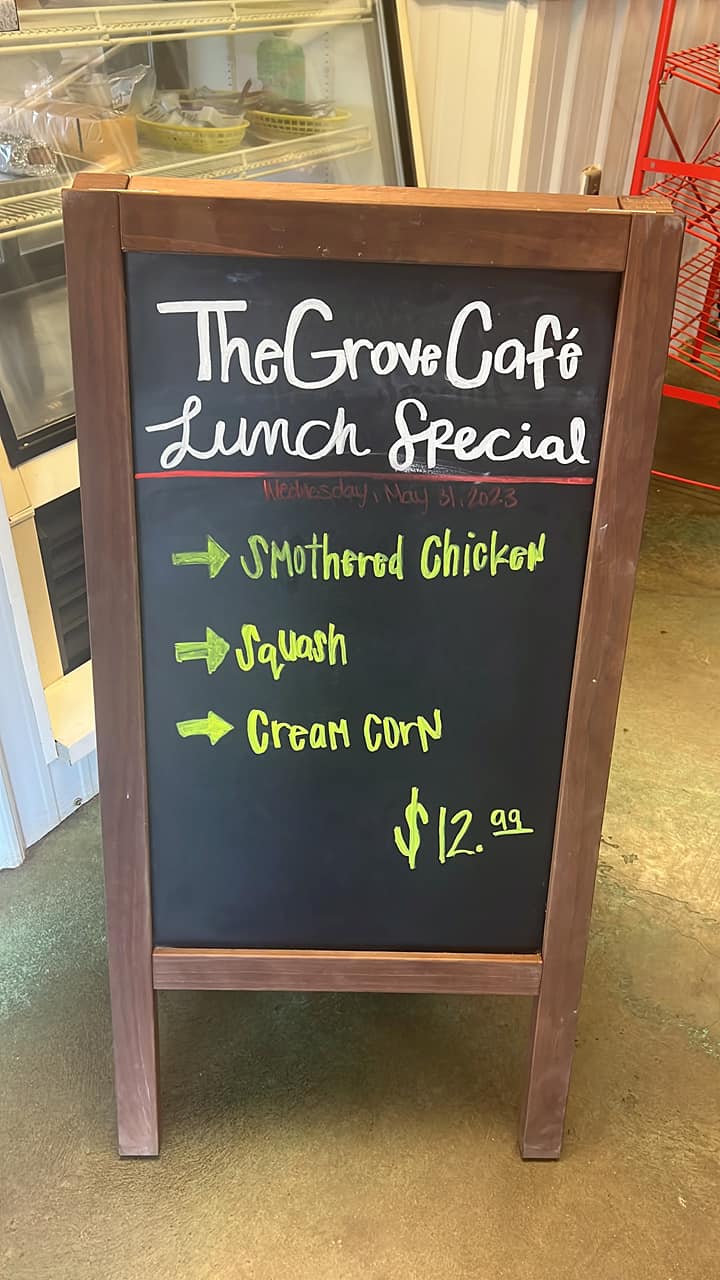 The Grove Café
Lunch Special
Wednesday, May 31, 2023
Smothered Chicken
Squash
Cream Corn
$12.99